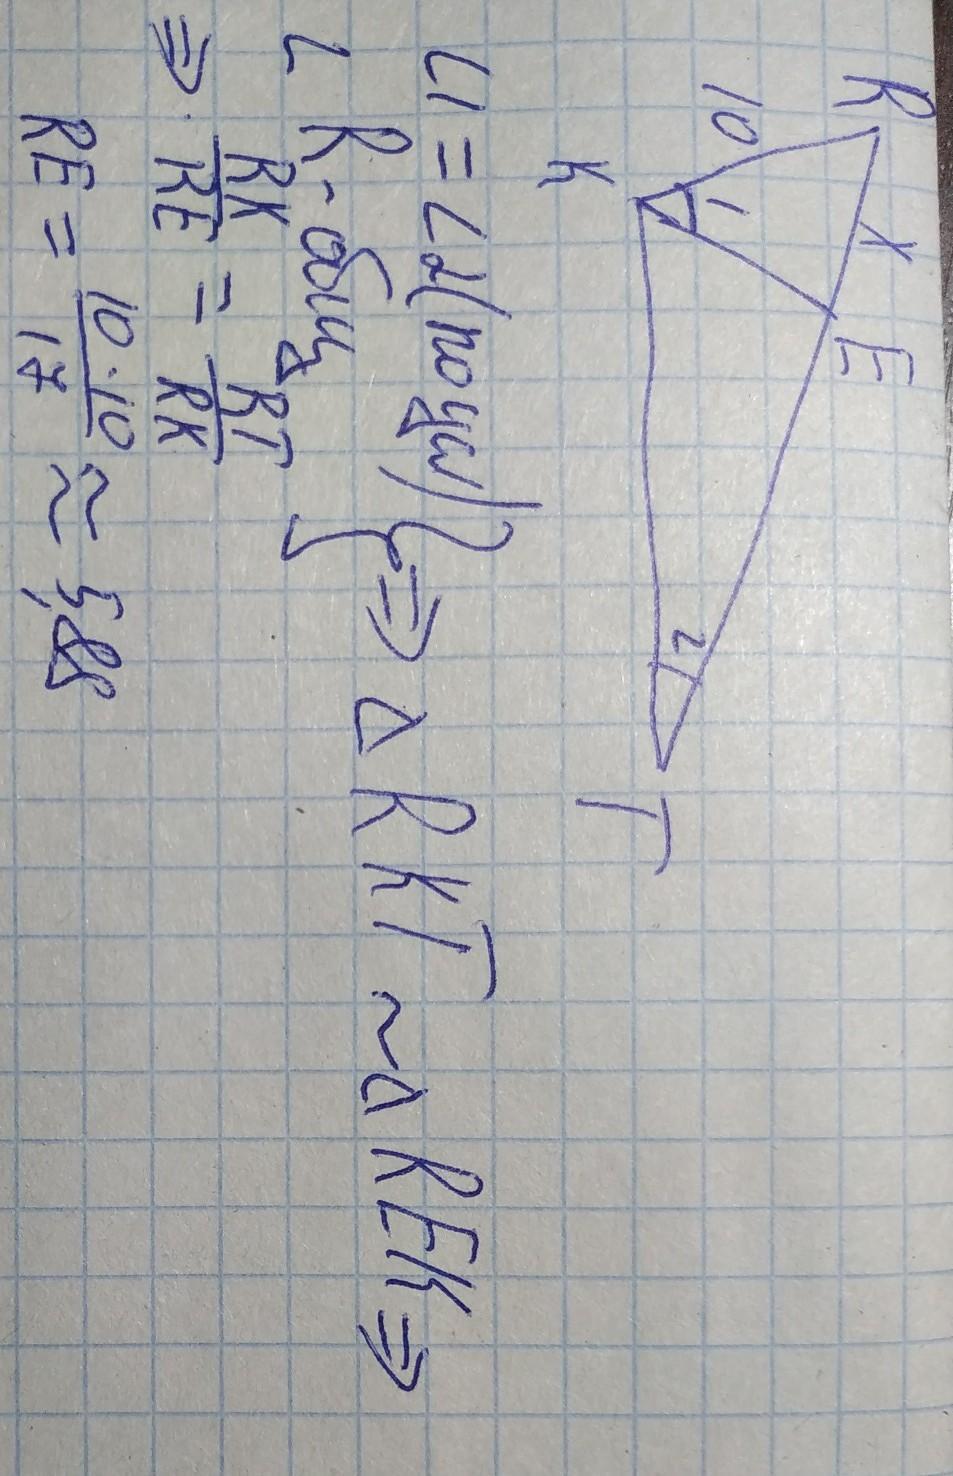 R x E
10 1 2
K T
∠1 = ∠2 (по усл) } ⇒ △ RKT ~ △ REK ⇒
∠ R - общ }
⇒ RK/RE = RT/RK
RE = 10·10/17 ≈ 5,88